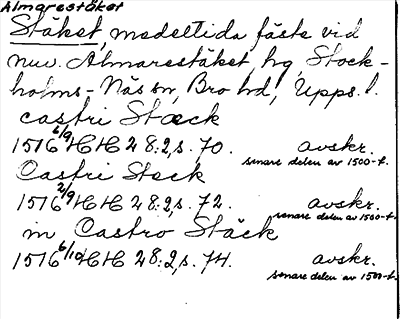 Almarestäket
Stäket, medeltida fäste vid
nuv. Almarestäket, hg, Stock-
holms-Näs sn, Bro hd, Upps. l.
castri Stæck
1516 6/9 HH 28:2, s. 70. avskr.
senare delen av 1500-t.
Castri Steck
1516 2/9 HH 28:2, s. 72. avskr.
senare delen av 1500-t.
in Castro Stäck
1516 6/10 HH 28:2, s. 74. avskr.
senare delen av 1500-t.